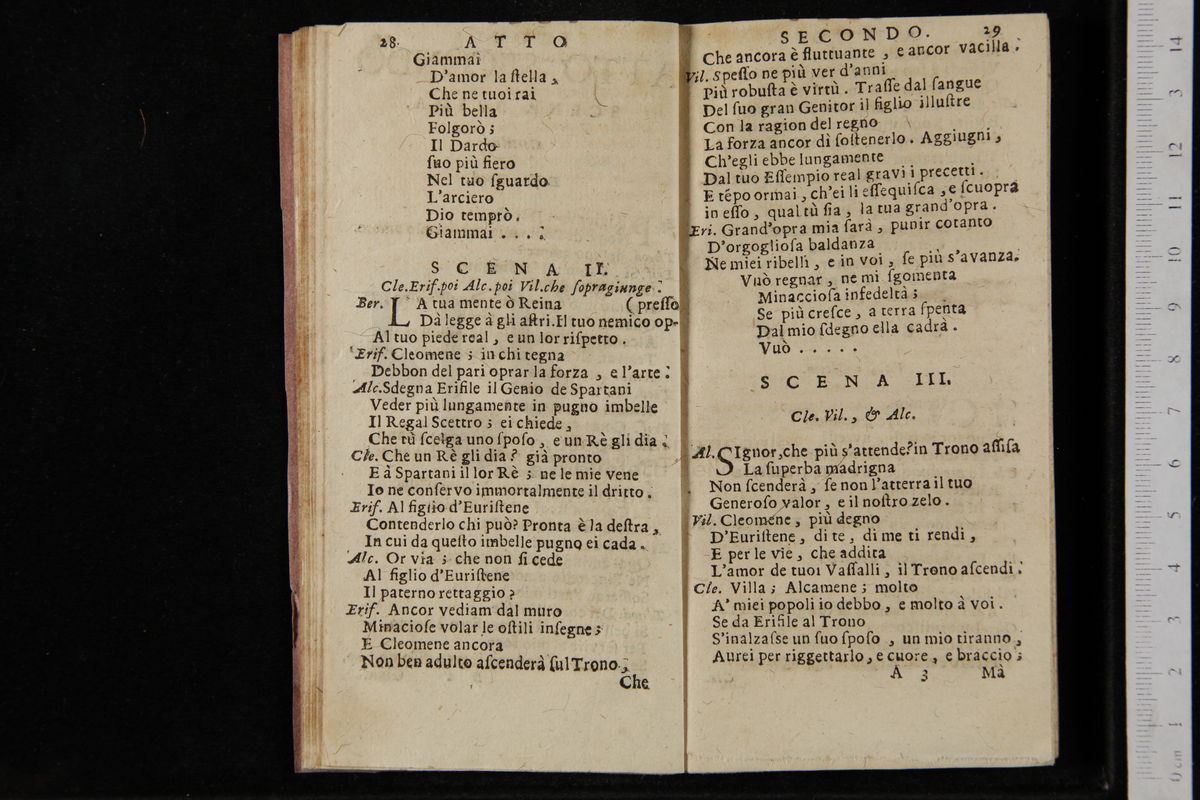 28. ATTO
Giammai
D'amor la ſtella,
Che ne tuoi rai
Più bella
Folgorò;
Il Dardo
ſuo più fiero
Nel tuo ſguardo
L'arciero
Dio temprò.
Giammai . . . .
SCENA II.
Cle.Erif.poi Alc.poi Vil.che ſopragiunge.
Ber. LA tua mente ò Reina (preſſo
Dà legge à gli aſtri.Il tuo nemico op-
Al tuo piede real, e un lor riſpetto.
Erif. Cleomene; in chi regna
Debbon del pari oprar la forza, e l'arte.
Alc.Sdegna Erifile il Genio de Spartani
Veder più lungamente in pugno imbelle
Il Regal Scettro; ei chiede,
Che tù ſcelga uno ſpoſo, e un Rè gli dia.
Cle. Che un Rè gli dia? già pronto
E à Spartani il lor Rè; ne le mie vene
Io ne conſervo immortalmente il dritto.
Erif. Al figlio d'Euriſtene
Contenderlo chi può? Pronta è la deſtra,
In cui da queſto imbelle pugno ei cada.
Alc. Or via; che non ſi cede
Al figlio d'Euriſtene
Il paterno rettaggio?
Erif. Ancor vediam dal muro
Minacioſe volar le oſtili inſegne;
E Cleomene ancora
Non ben adulto aſcenderà ſul Trono.
Che
SECONDO. 29
Che ancora è fluttuante, e ancor vacilla.
Vil. Speſſo ne più ver d'anni
Più robuſta è virtù. Traſſe dal ſangue
Del ſuo gran Genitor il figlio illuſtre
Con la ragion del regno
La forza ancor di ſoſtenerlo. Aggiugni,
Ch'egli ebbe lungamente
Dal tuo Eſſempio real gravi i precetti.
E tēpo ormai, ch'ei li eſſequiſca, e ſcuopra
in eſſo, qual tù ſia, la tua grand'opra.
Eri. Grand'opra mia ſarà, punir cotanto
D'orgoglioſa baldanza
Ne miei ribelli, e in voi, ſe più s'avanza.
Vuò regnar, ne mi ſgomenta
Minaccioſa infedeltà;
Se più creſce, a terra ſpenta
Dal mio ſdegno ella cadrà.
Vuò . . . . .
SCENA III.
Cle. Vil., & Alc.
Al. SIgnor,che più s'attende?in Trono aſſiſa
La ſuperba madrigna
Non ſcenderà, ſe non l'atterra il tuo
Generoſo valor, e il noſtro zelo.
Vil. Cleomene, più degno
D'Euriſtene, di te, di me ti rendi,
E per le vie, che addita
L'amor de tuoi Vaſſalli, il Trono aſcendi.
Cle. Villa; Alcamene; molto
A' miei popoli io debbo, e molto à voi.
Se da Erifile al Trono
S'inalzaſse un ſuo ſpoſo, un mio tiranno,
Aurei per riggettarlo, e cuore, e braccio;
A 3 Mà
0 cm 1 2 3 4 5 6 7 8 9 10 11 12 3 14